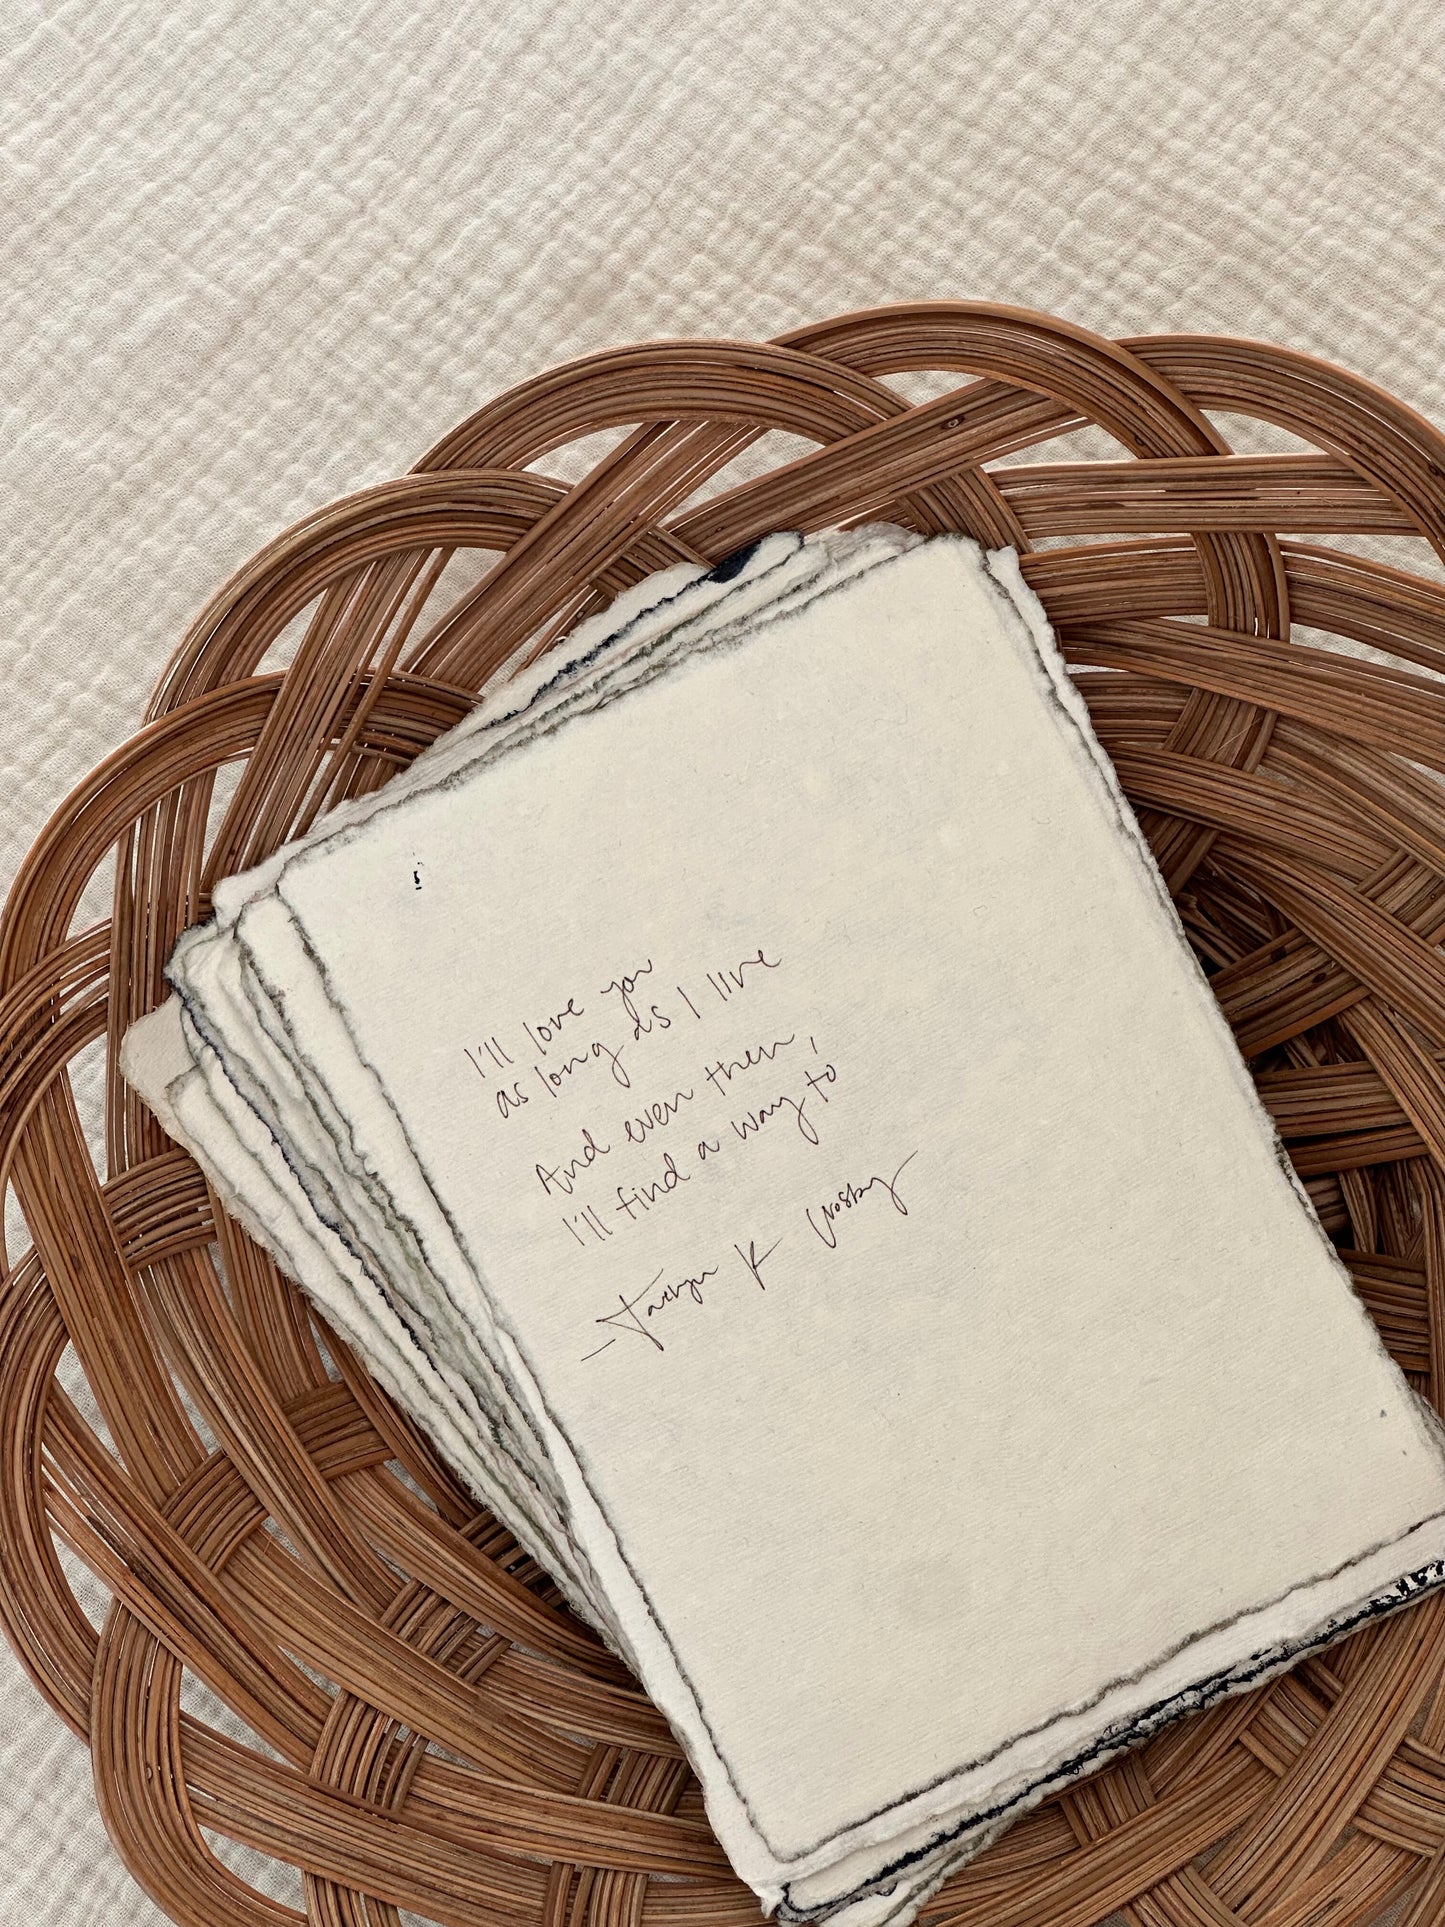 I'll love you
as long as I live
And even then,
I'll find a way to
— Taryn K Crosby